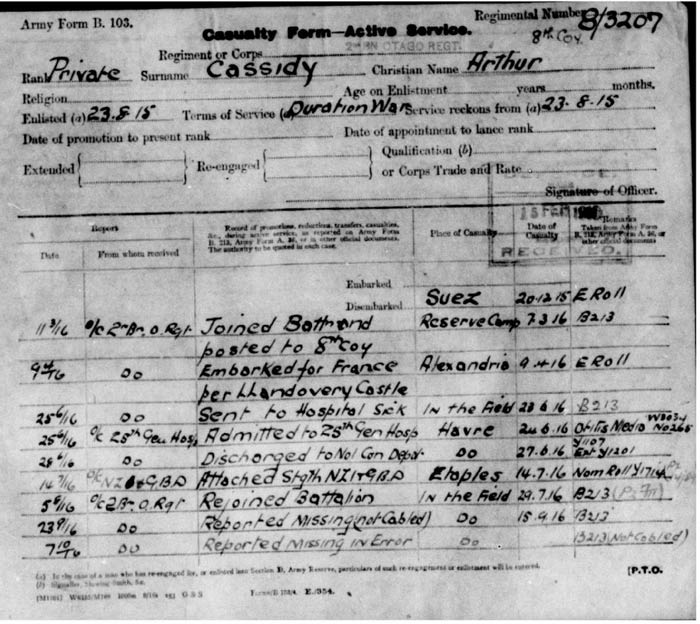 Army Form B. 103.
Regimental Number 8/3207
Casualty Form—Active Service.
8th Coy
Regiment or Corps 2nd BN OTAGO REGT.
Rank Private Surname Cassidy Christian Name Arthur
Religion Age on Enlistment years months.
Enlisted (a) 23.8.15 Terms of Service (a) Duration War Service reckons from (a) 23.8.15
Date of promotion to present rank Date of appointment to lance rank
Extended Re-engaged Qualification (b)
or Corps Trade and Rate
Signature of Officer.
RECEIVED
Report
Date From whom received
Record of promotions, reductions, transfers, casualties, &c., during active service, as reported on Army Form B. 213, Army Form A. 36, or in other official documents. The authority to be quoted in each case.
Place of Casualty
Date of Casualty
Remarks Taken from Army Form B. 213, Army Form A. 36, or other official documents
Embarked
Disembarked Suez 20.12.15 E Roll
11 3/16 o/c 2 Bn. O. Rgt Joined Battn and Reserve Camp 7.3.16 B213
posted to 8th Coy
9 4/16 Do Embarked for France Alexandria 9.4.16 E Roll
per Llandovery Castle
25 6/16 Do Sent to Hospital Sick In the Field 23.6.16 B213
W3034
25 6/16 o/c 25th Gen Hosp Admitted to 25th Gen Hosp Havre 24.6.16 Otitis Media No 265
Y1107
28 6/16 Do Discharged to Nol Con Depot Do 27.6.16 Ent Y1201
14 7/16 o/c NZI & GBD Attached Stgth NZI & GBD Etaples 14.7.16 Nom Roll Y1714
5 8/16 o/c 2 Bn. O. Rgt Rejoined Battalion In the Field 29.7.16 B213
23 9/16 Do Reported Missing (not Cabled) Do 15.9.16 B213
7 10/16 Do Reported Missing in Error Do B213 (Not Cabled)
(a) In the case of a man who has re-engaged for, or enlisted into Section D, Army Reserve, particulars of such re-engagement or enlistment will be entered.
(b) Signaller, Shoeing Smith, &c.
[P.T.O.
Forms/B 103/4. E./354.